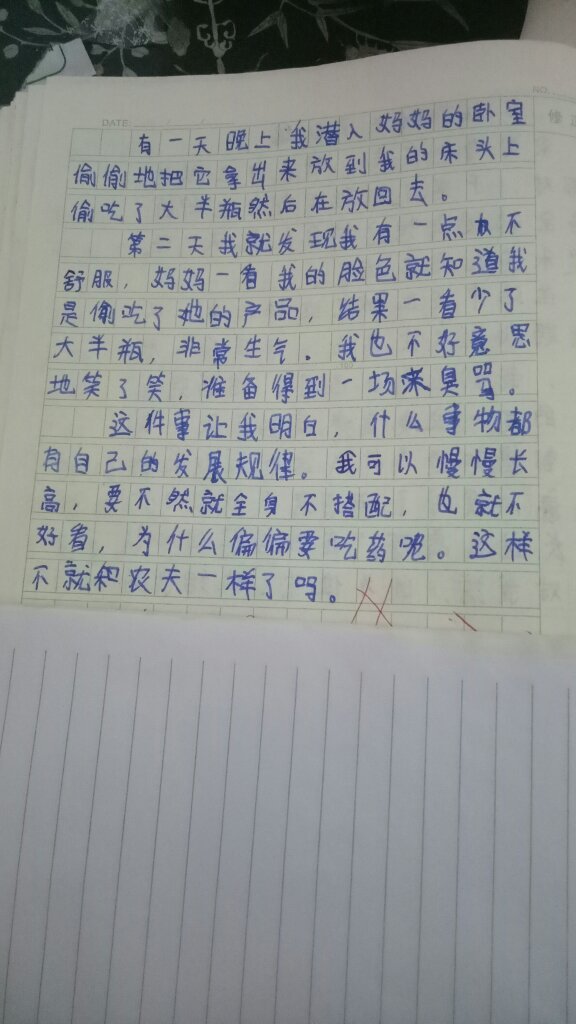 DATE
NO.
有一天晚上我潜入妈妈的卧室
偷偷地把它拿出来放到我的床头上
偷吃了大半瓶然后在放回去。
第二天我就发现我有一点不
舒服，妈妈一看我的脸色就知道我
是偷吃了她的产品，结果一看少了
大半瓶，非常生气。我也不好意思
地笑了笑，准备得到一场臭骂。
这件事让我明白，什么事物都
有自己的发展规律。我可以慢慢长
高，要不然就全身不搭配，也就不
好看，为什么偏偏要吃药呢。这样
不就和农夫一样了吗。